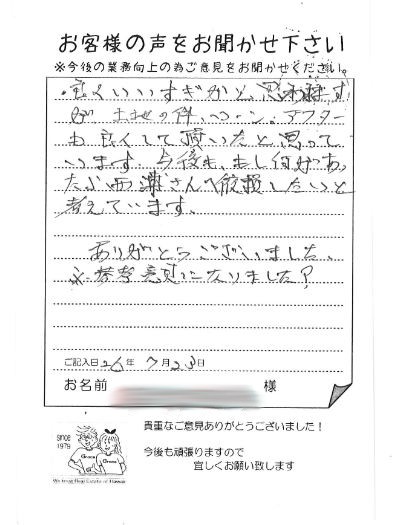 お客様の声をお聞かせ下さい
※今後の業務向上の為ご意見をお聞かせください。
・良くいいすぎかと思われます
が 土地の件、ローン、アフター
も良くして頂いたと思って
います。今後も、もし何かあっ
たら西 さんへ依頼したいと
考えています。
ありがとうございました。
※参考意見になりましたか?
ご記入日 26年 7月23日
お名前 様
SINCE
1979
貴重なご意見ありがとうございました!
今後も頑張りますので
宜しくお願い致します